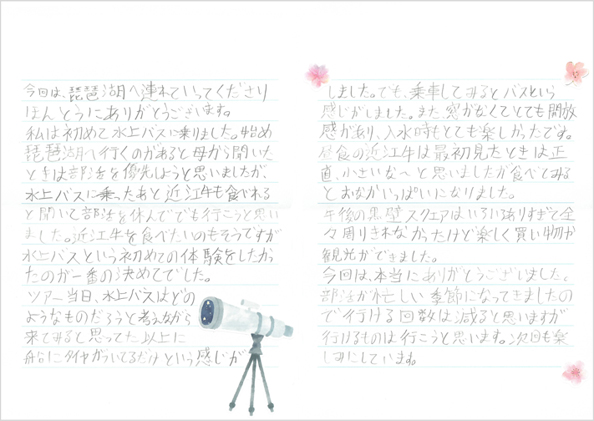 今回は、琵琶湖へ連れていってくださり
ほんとうにありがとうございます。
私は初めて水上バスに乗りました。始め
琵琶湖へ行くのがあると母から聞いた
ときは部活を優先しようと思いましたが、
水上バスに乗ったあと近江牛も食べれる
と聞いて部活を休んででも行こうと思い
ました。近江牛を食べたいのもそうですが
水上バスという初めての体験をしたかっ
たのが一番の決めてでした。
ツアー当日、水上バスはどの
ようなものだろうと考えながら
来てみると思ってた以上に
船にタイヤがついてるだけという感じが
しました。でも、乗車してみるとバスという
感じがしました。また、窓がなくてとても開放
感があり、入水時とても楽しかったです。
昼食の近江牛は最初見たときは正
直、小さいな～と思いましたが食べてみる
とおなかいっぱいになりました。
午後の黒壁スクエアはいろいろありすぎて全
々周りきれなかったけど楽しく買い物や
観光ができました。
今回は、本当にありがとうございました。
部活が忙しい季節になってきましたの
で行ける回数は減ると思いますが
行けるものは行こうと思います。次回も楽
しみにしています。